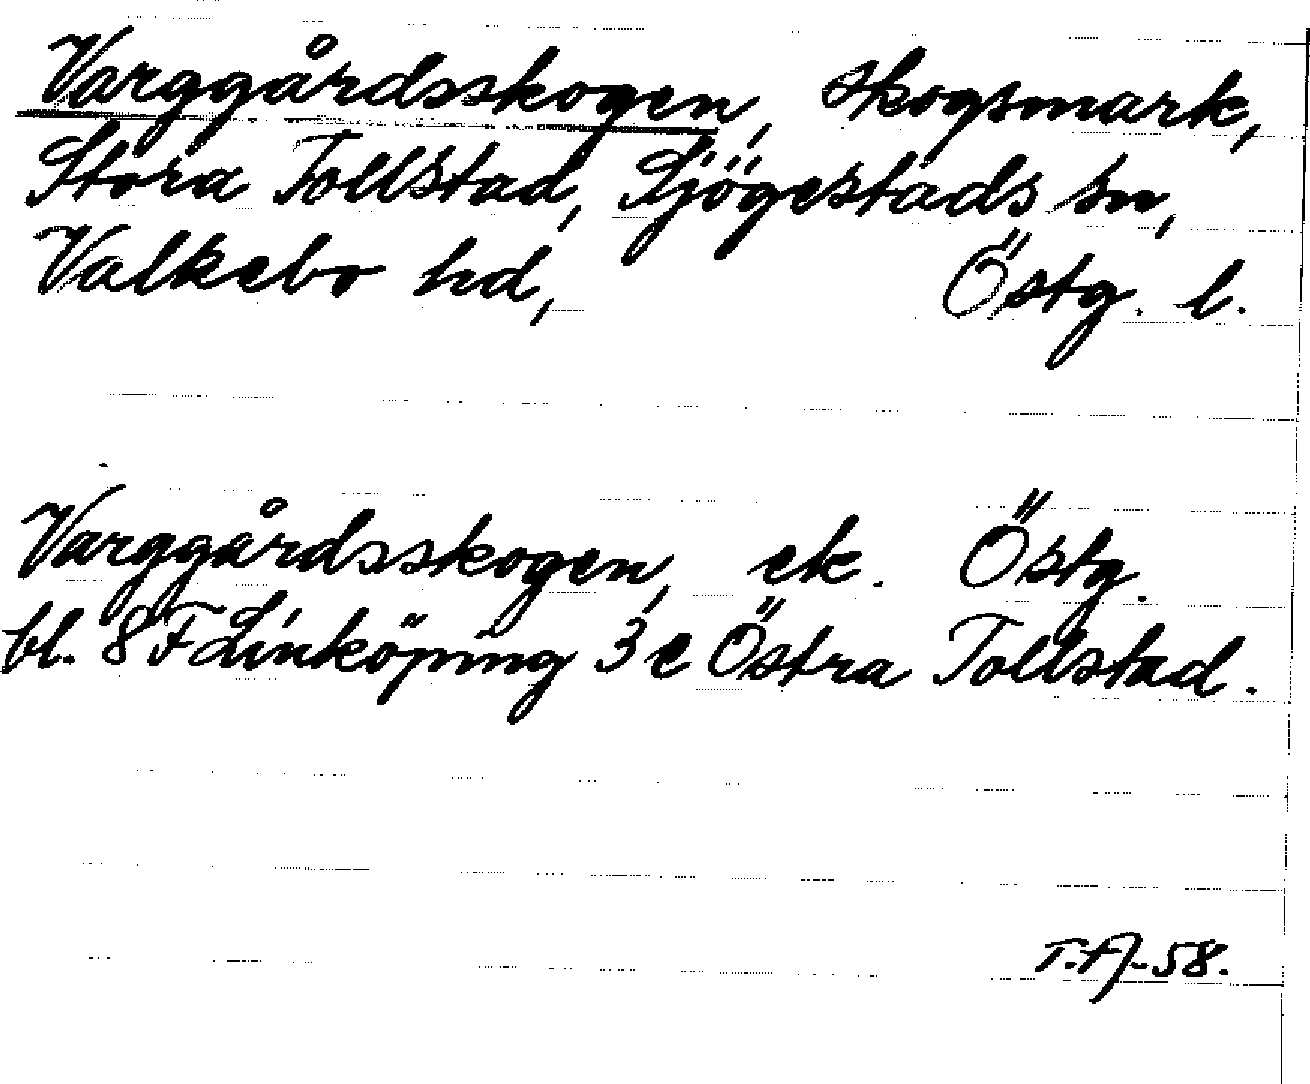 Varggårdsskogen, skogsmark,
Stora Tollstad, Sjögestads sn,
Valkebo hd, Östg. l.
Varggårdsskogen, ek. Östg.
bl. 8 F Linköping 3 e Östra Tollstad.
T.Aj-58.